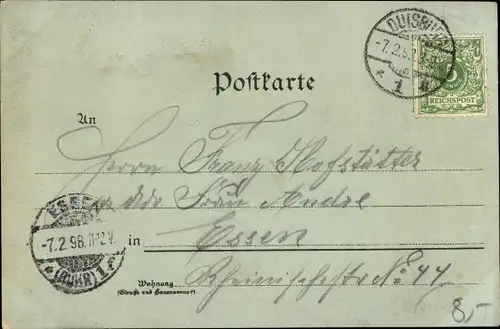 DUISBURG
-7.2.98.
* 1 *
5
REICHSPOST
Postkarte
An
Herrn Franz Hofstätter
Frau Andre
Essen
in
Rheinischestr. No 44
ESSEN
-7.2.98.11-12V.
*(RUHR)1.F
Wohnung
(Straße und Hausnummer)
8,-